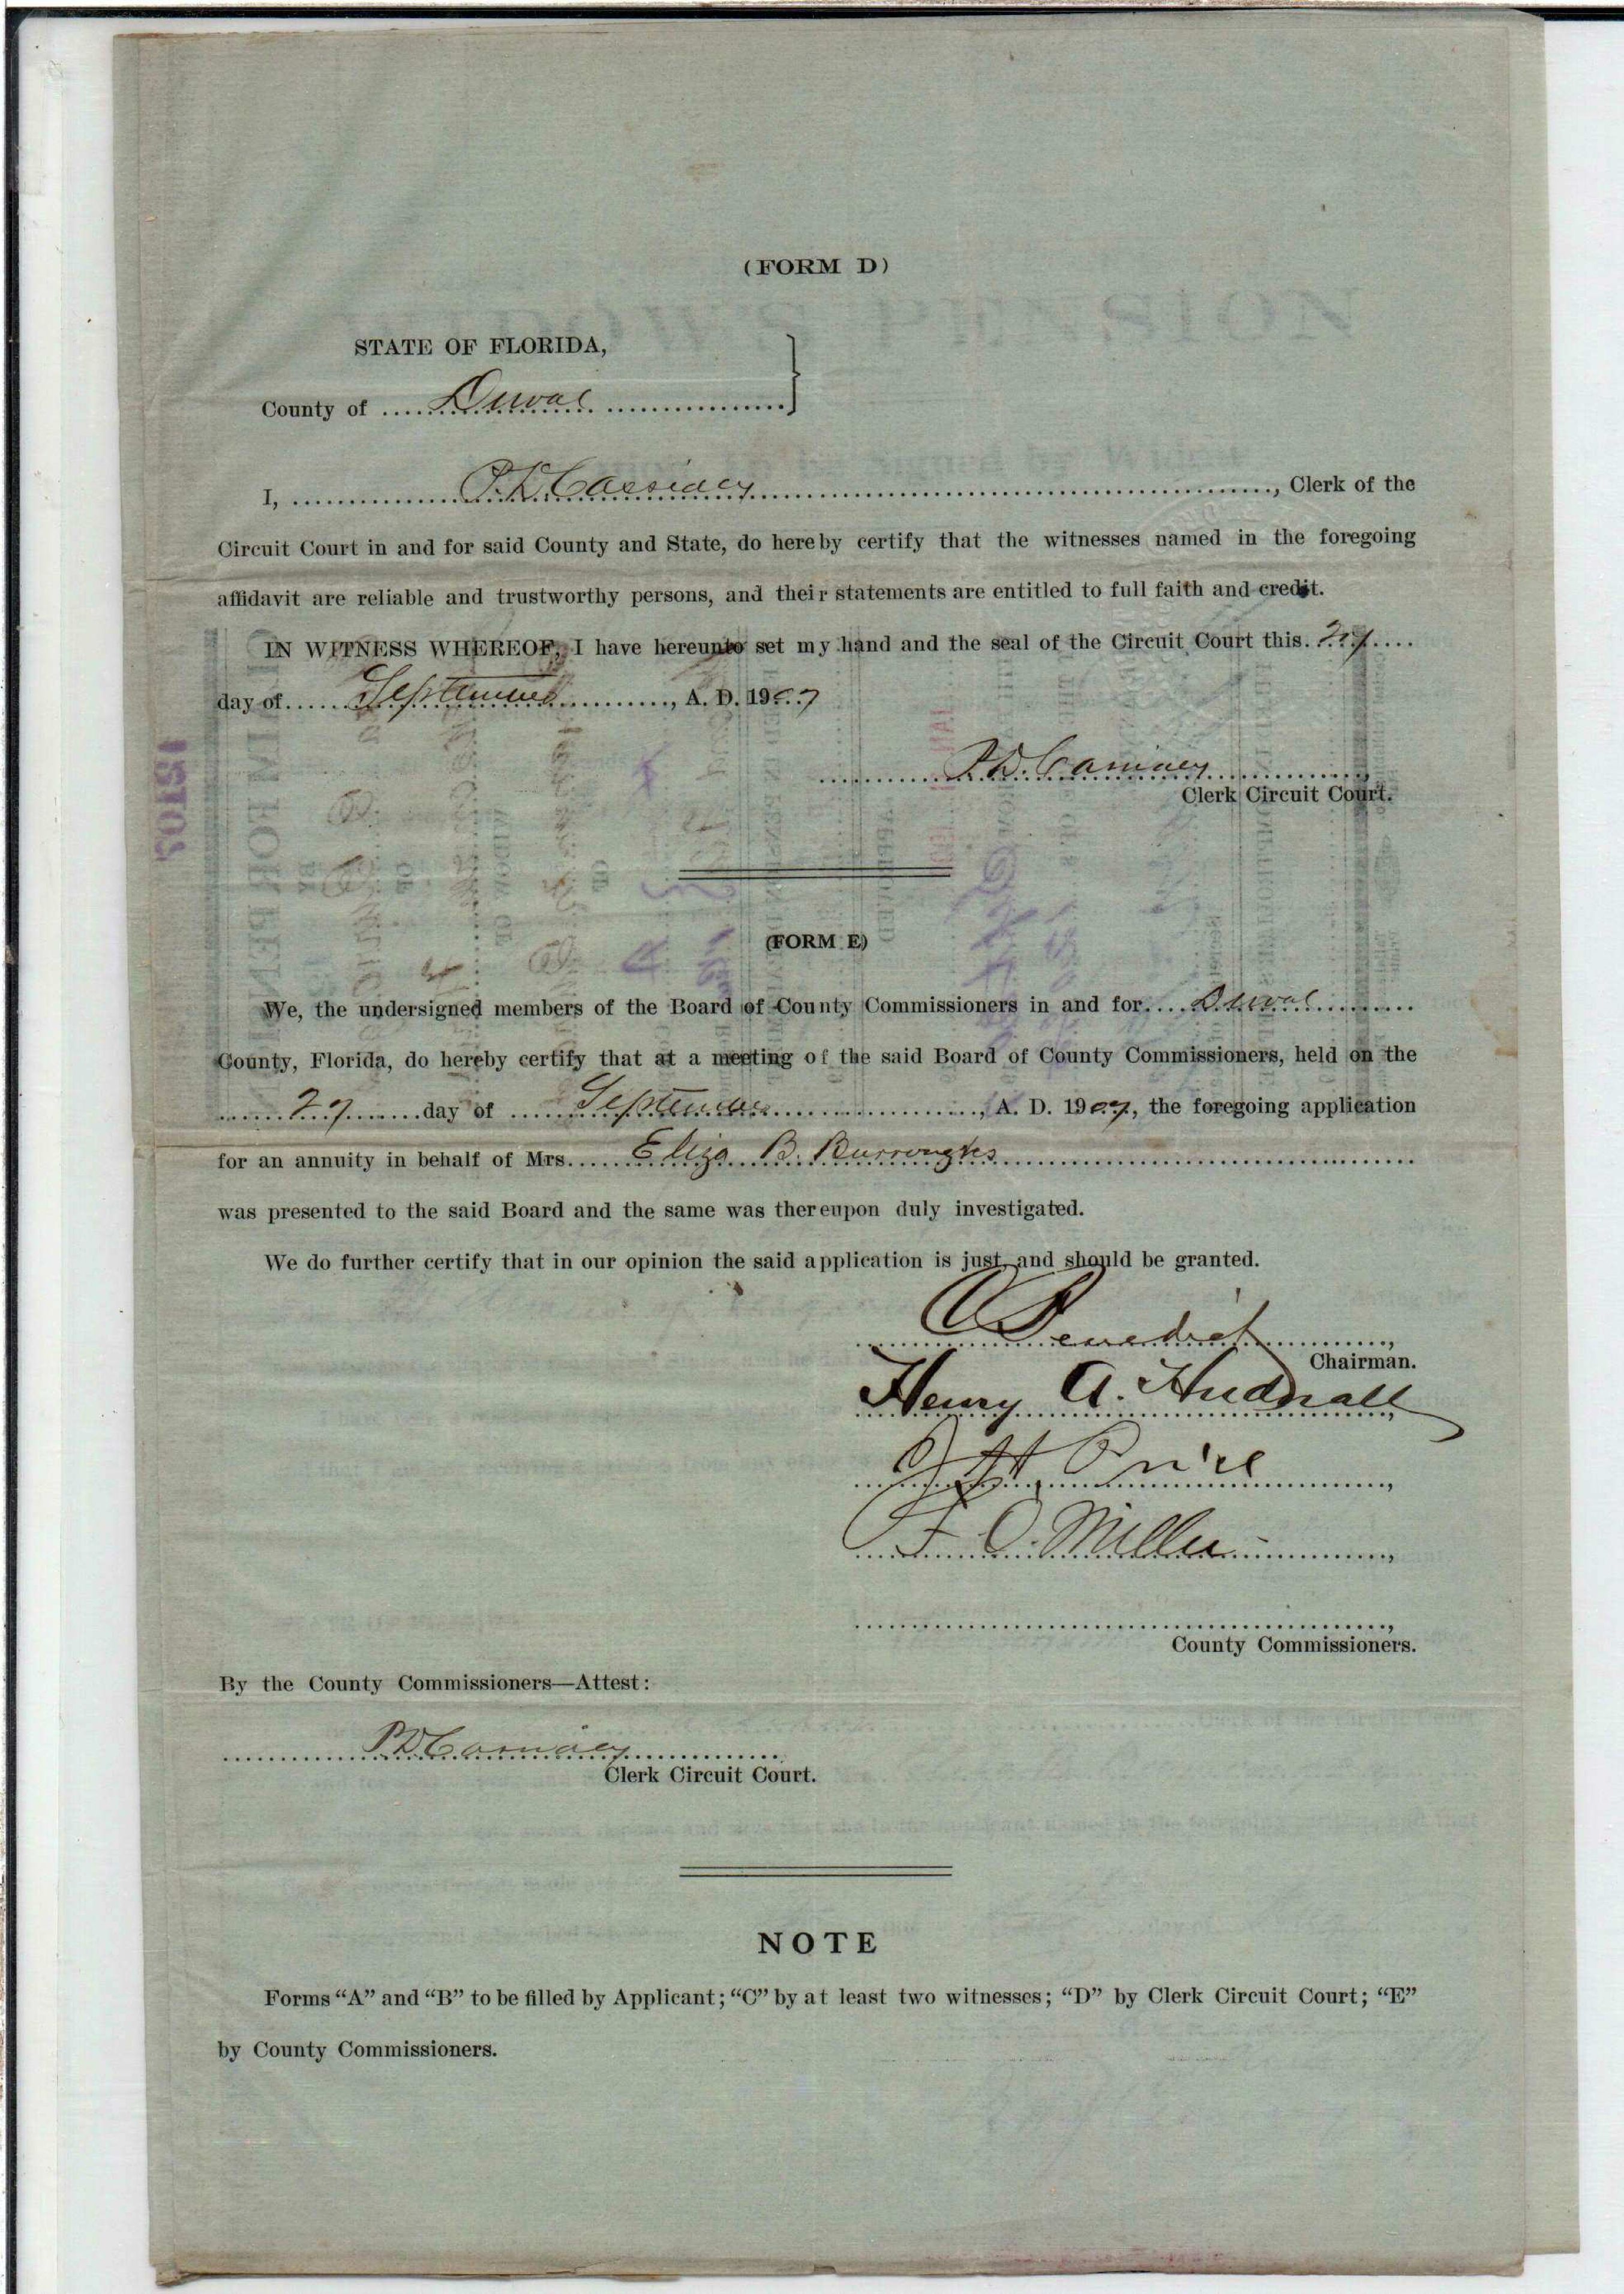 (FORM D)
STATE OF FLORIDA,
County of Duval
I, P. D. Cassidey, Clerk of the
Circuit Court in and for said County and State, do hereby certify that the witnesses named in the foregoing
affidavit are reliable and trustworthy persons, and their statements are entitled to full faith and credit.
IN WITNESS WHEREOF, I have hereunto set my hand and the seal of the Circuit Court this 27
day of September, A. D. 1907
P. D. Cassidey
Clerk Circuit Court.
(FORM E)
We, the undersigned members of the Board of County Commissioners in and for Duval
County, Florida, do hereby certify that at a meeting of the said Board of County Commissioners, held on the
27 day of September, A. D. 1907, the foregoing application
for an annuity in behalf of Mrs. Eliza B. Burroughs
was presented to the said Board and the same was thereupon duly investigated.
We do further certify that in our opinion the said application is just, and should be granted.
C Benedict,
Chairman.
Henry A. Hudnall,
J H Price,
F. O. Miller,
County Commissioners.
By the County Commissioners—Attest:
P D Cassidey
Clerk Circuit Court.
NOTE
Forms "A" and "B" to be filled by Applicant; "C" by at least two witnesses; "D" by Clerk Circuit Court; "E"
by County Commissioners.